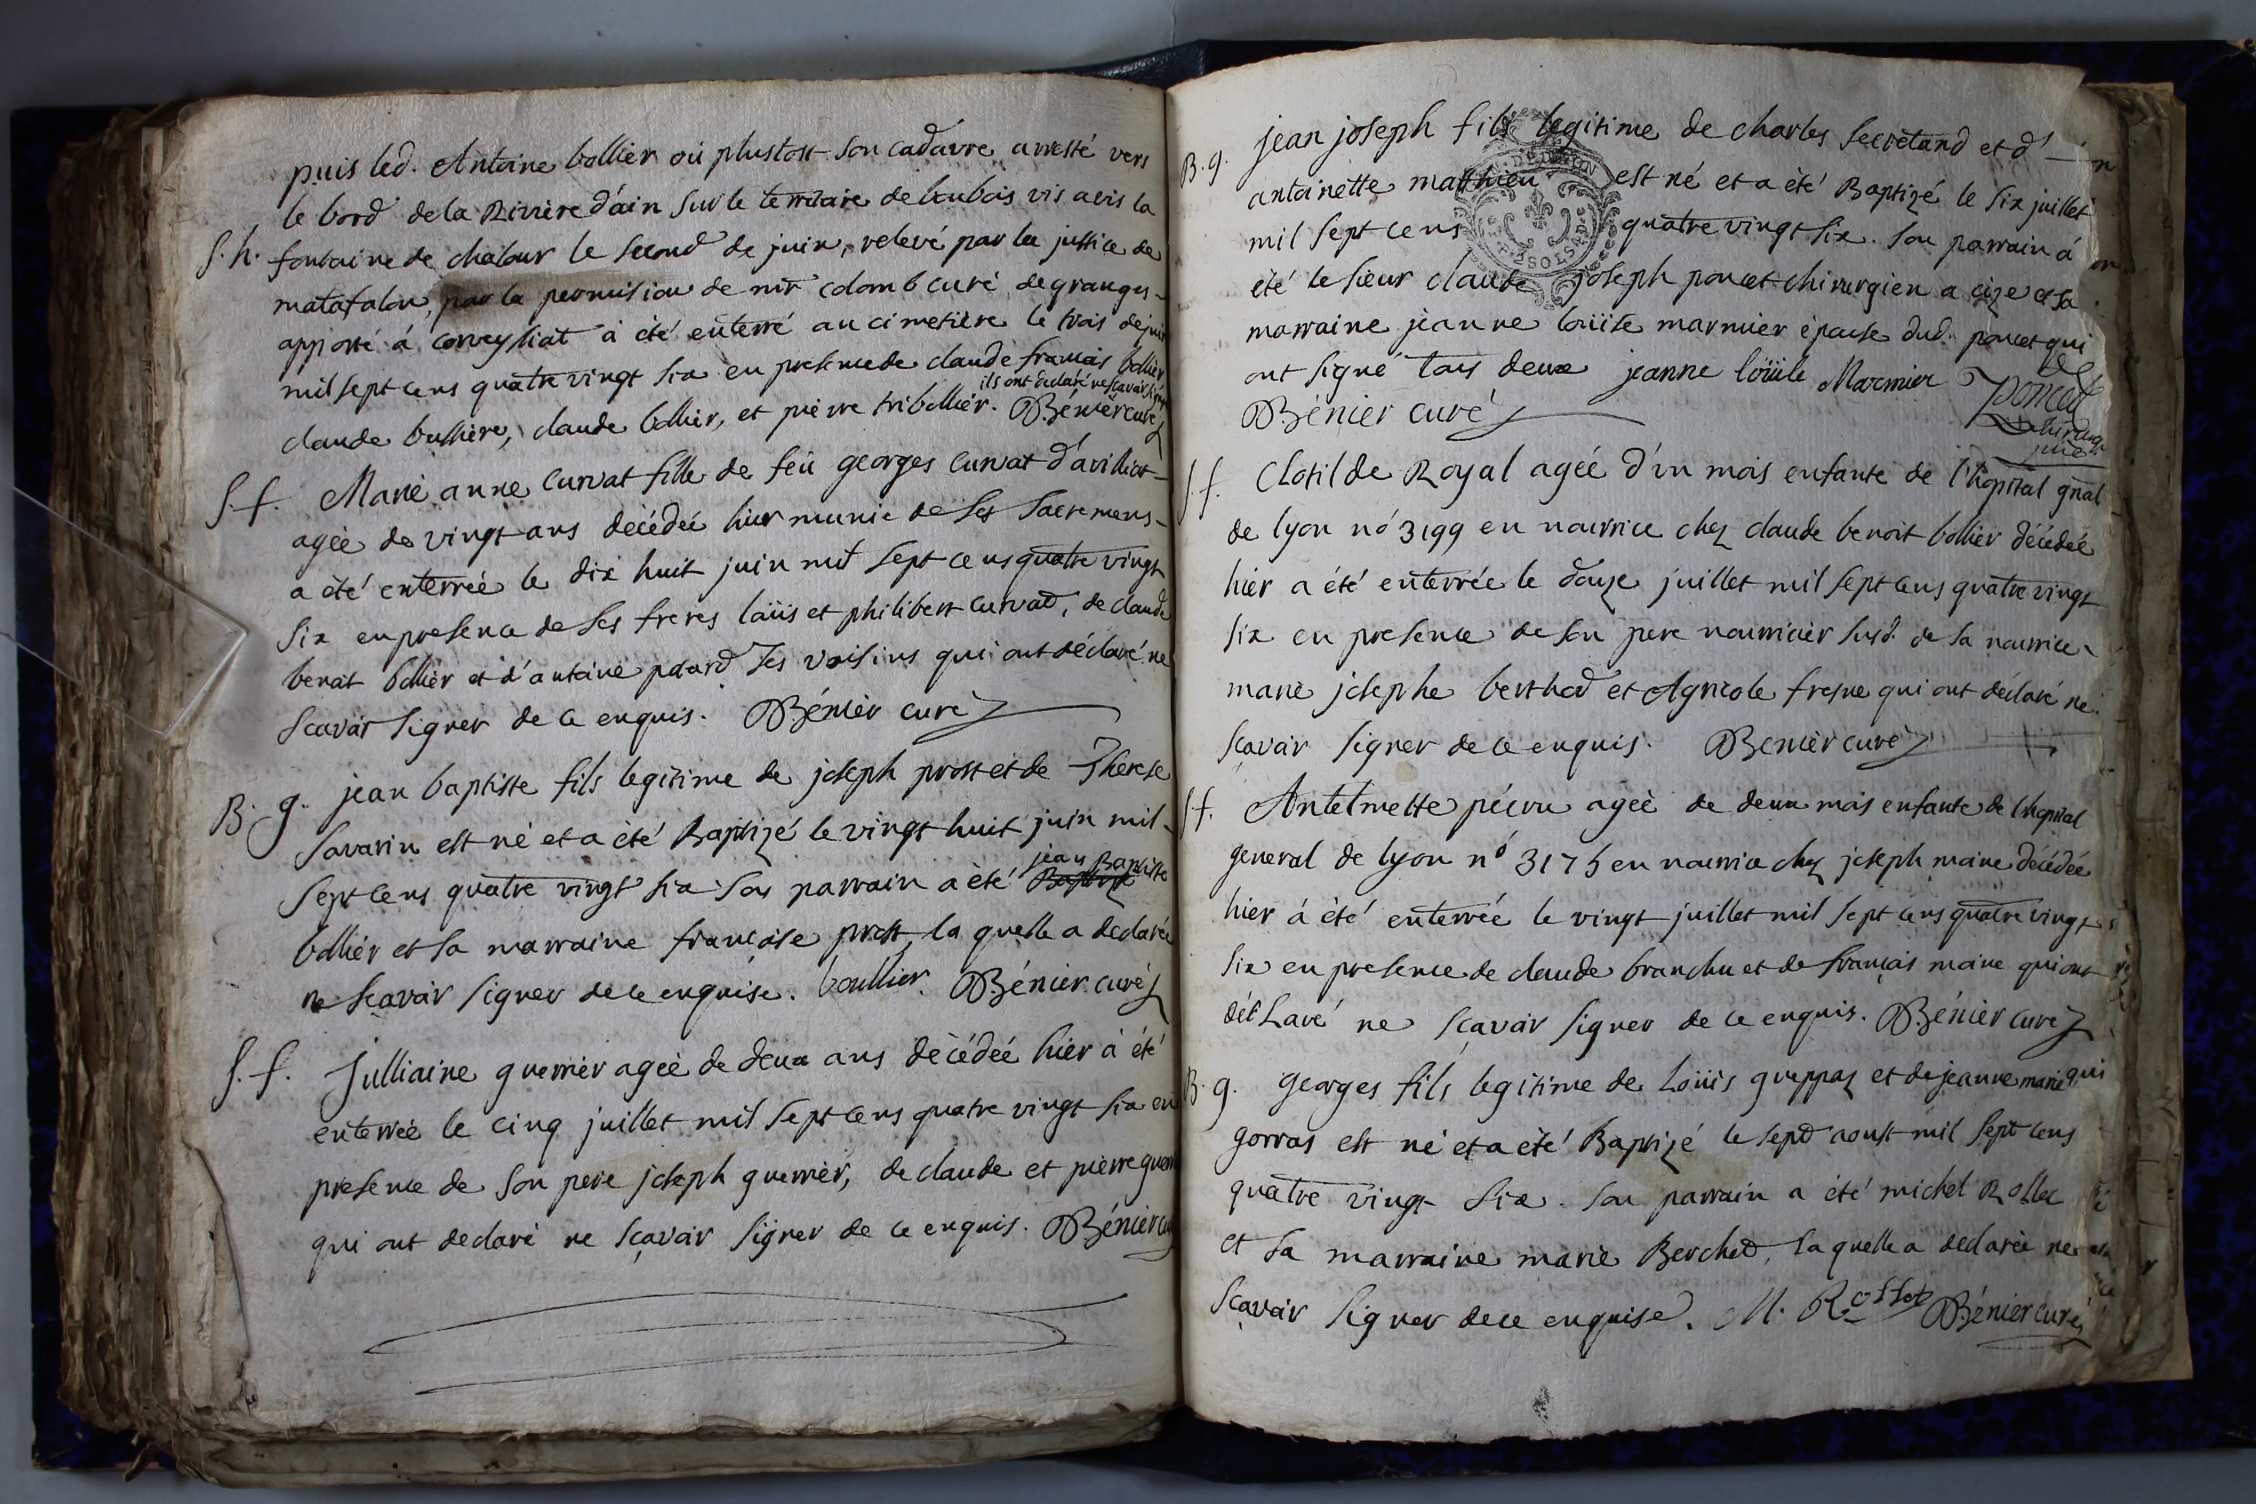 puis led. Antoine bollier oú plustost son cadavre arresté vers
le bord de la Rivière d'ain sur le territoire de boubois vis a vis la
S. h. fontaine de chalour le second de juin, relevé par la justice de
matafalon, par la permision de mr colomb curé de granges
apporté á corveyssiat à été enterré au cimetière le trois de juin
mil sept cens quatre vingt six en presence de claude françois bollier
ils ont declaré ne scavoir signer
claude bussière, claude bollier, et pierre tribollier. Bénier curé
S. f. Marie anne curvat fille de feü georges curvat d'avilliat
agée de vingt ans décédée hier munie de ses sacremens
a été enterrée le dix huit juin mil sept cens quatre vingt
six en presence de ses freres loüis et philibert curvat, de claude
benoit bollier et d'antoine poard ses voisins qui ont déclaré ne
scavoir signer de ce enquis. Bénier curé
B. g. jean baptiste fils legitime de joseph prost et de Therese
savarin est né et a été Baptizé le vingt huit juin mil
jean Baptiste
sept cens quatre vingt six son parrain a été Baptiste
bollier et sa marraine françoise prost, la quelle a declarée
ne scavoir signer de ce enquise. boullier. Bénier curé
S. f. Julliaine guerrier agée de deux ans décédée hier à été
enterrée le cinq juillet mil sept cens quatre vingt six en
presence de son pere joseph guerrier, de claude et pierre
qui ont declaré ne sçavoir signer de ce enquis. Bénier
B. g. jean joseph fils legitime de charles secretand et d'
antoinette matthieu est né et a été Baptizé le six juillet
mil sept cens quatre vingt six. son parrain á
été le sieur claude joseph poncet chirurgien a cize et sa
marraine jeanne loüise marmier épouse dud. poncet qui
ont signé tous deux jeanne loüise Marmier poncet
Bénier curé
S. f. Clotilde Royal agée d'un mois enfante de l'hopital gnal
de lyon nó 3199 en nourrice chez claude benoit bollier décédée
hier a été enterrée le douze juillet mil sept cens quatre vingt
six en presence de son pere nourricier susd. de sa nourrice
marie josephe berthod et Agricole fresne qui ont déclaré ne
sçavoir signer de ce enquis. Benier curé
S. f. Antelmette agée de deux mois enfante de l'hopital
general de lyon nó 3175 en nourrice chez joseph moine décédée
hier á été enterrée le vingt juillet mil sept cens quatre vingt
six en presence de claude branchu et de françois moine qui ont
déclaré ne sçavoir signer de ce enquis. Bénier curé
B. g. georges fils legitime de Loüis gruppaz et de jeanne marie
gorras est né et a été Baptizé le sept aoust mil sept cens
quatre vingt six. son parrain a été michel Rosset
et sa marraine marie Berchod, laquelle a declarée ne
sçavoir signer de ce enquise. M. Rosset Bénier curé